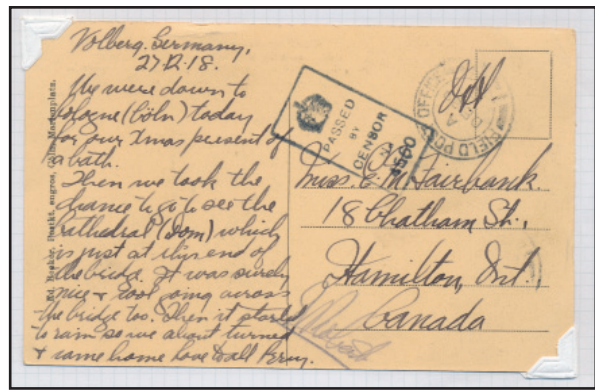 Volberg. Germany,
27.12.18.
We were down to
Cologne (Cöln) today
for our Xmas present of
a bath.
Then we took the
chance to go to see the
Cathedral (Dom) which
is just at this end of
the bridge. It was surely
nice & cool going across
the bridge too. Then it started
to rain so we about turned
& came home Love to all
PASSED
BY
CENSOR
4560
FIELD PO
OFFICE
Miss. E. M. Fairbank.
18 Chatham St.,
Hamilton, Ont.,
Canada